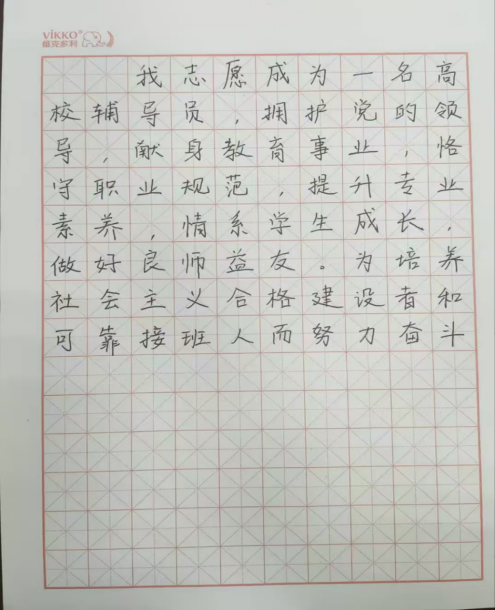 ViKKO®
维克多利
我志愿成为一名高
校辅导员，拥护党的领
导，献身教育事业，恪
守职业规范，提升专业
素养，情系学生成长，
做好良师益友。为培养
社会主义合格建设者和
可靠接班人而努力奋斗